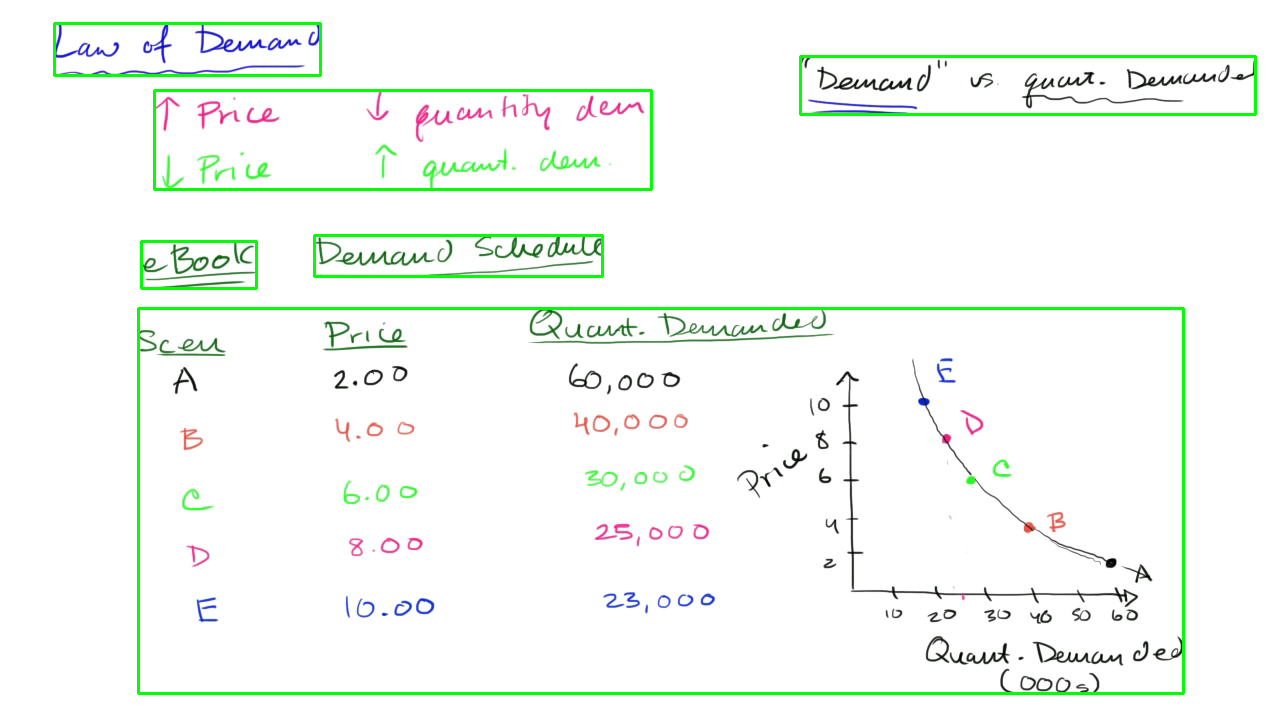 Law of Demand
"Demand" vs. quant. Demanded
↑ Price ↓ quantity dem
↓ Price ↑ quant. dem.
eBook Demand Schedule
Scen Price Quant. Demanded
A 2.00 60,000
B 4.00 40,000
C 6.00 30,000
D 8.00 25,000
E 10.00 23,000
E
10
D
8
Price
C
6
4
B
2
A
10 20 30 40 50 60
Quant. Demanded
(000s)